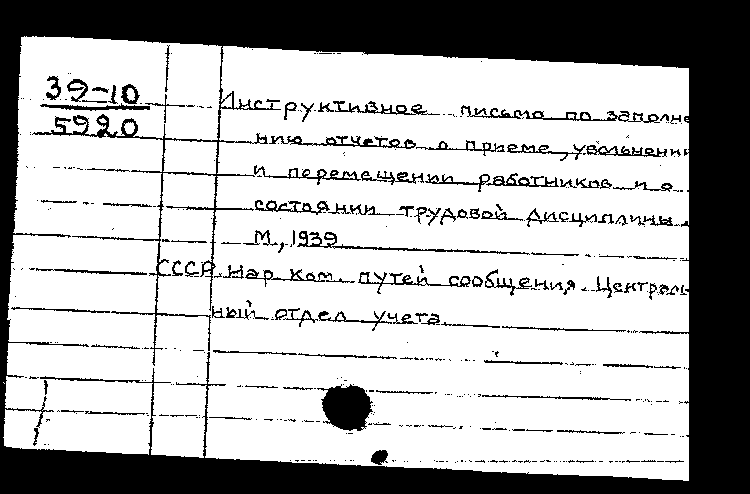 39-10
5920
Инструктивное письмо по заполне
нию отчетов о приеме, увольнении
и перемещении работников и о
состоянии трудовой дисциплины.
М., 1939
СССР. Нар. ком. путей сообщения. Централь
ный отдел учета.